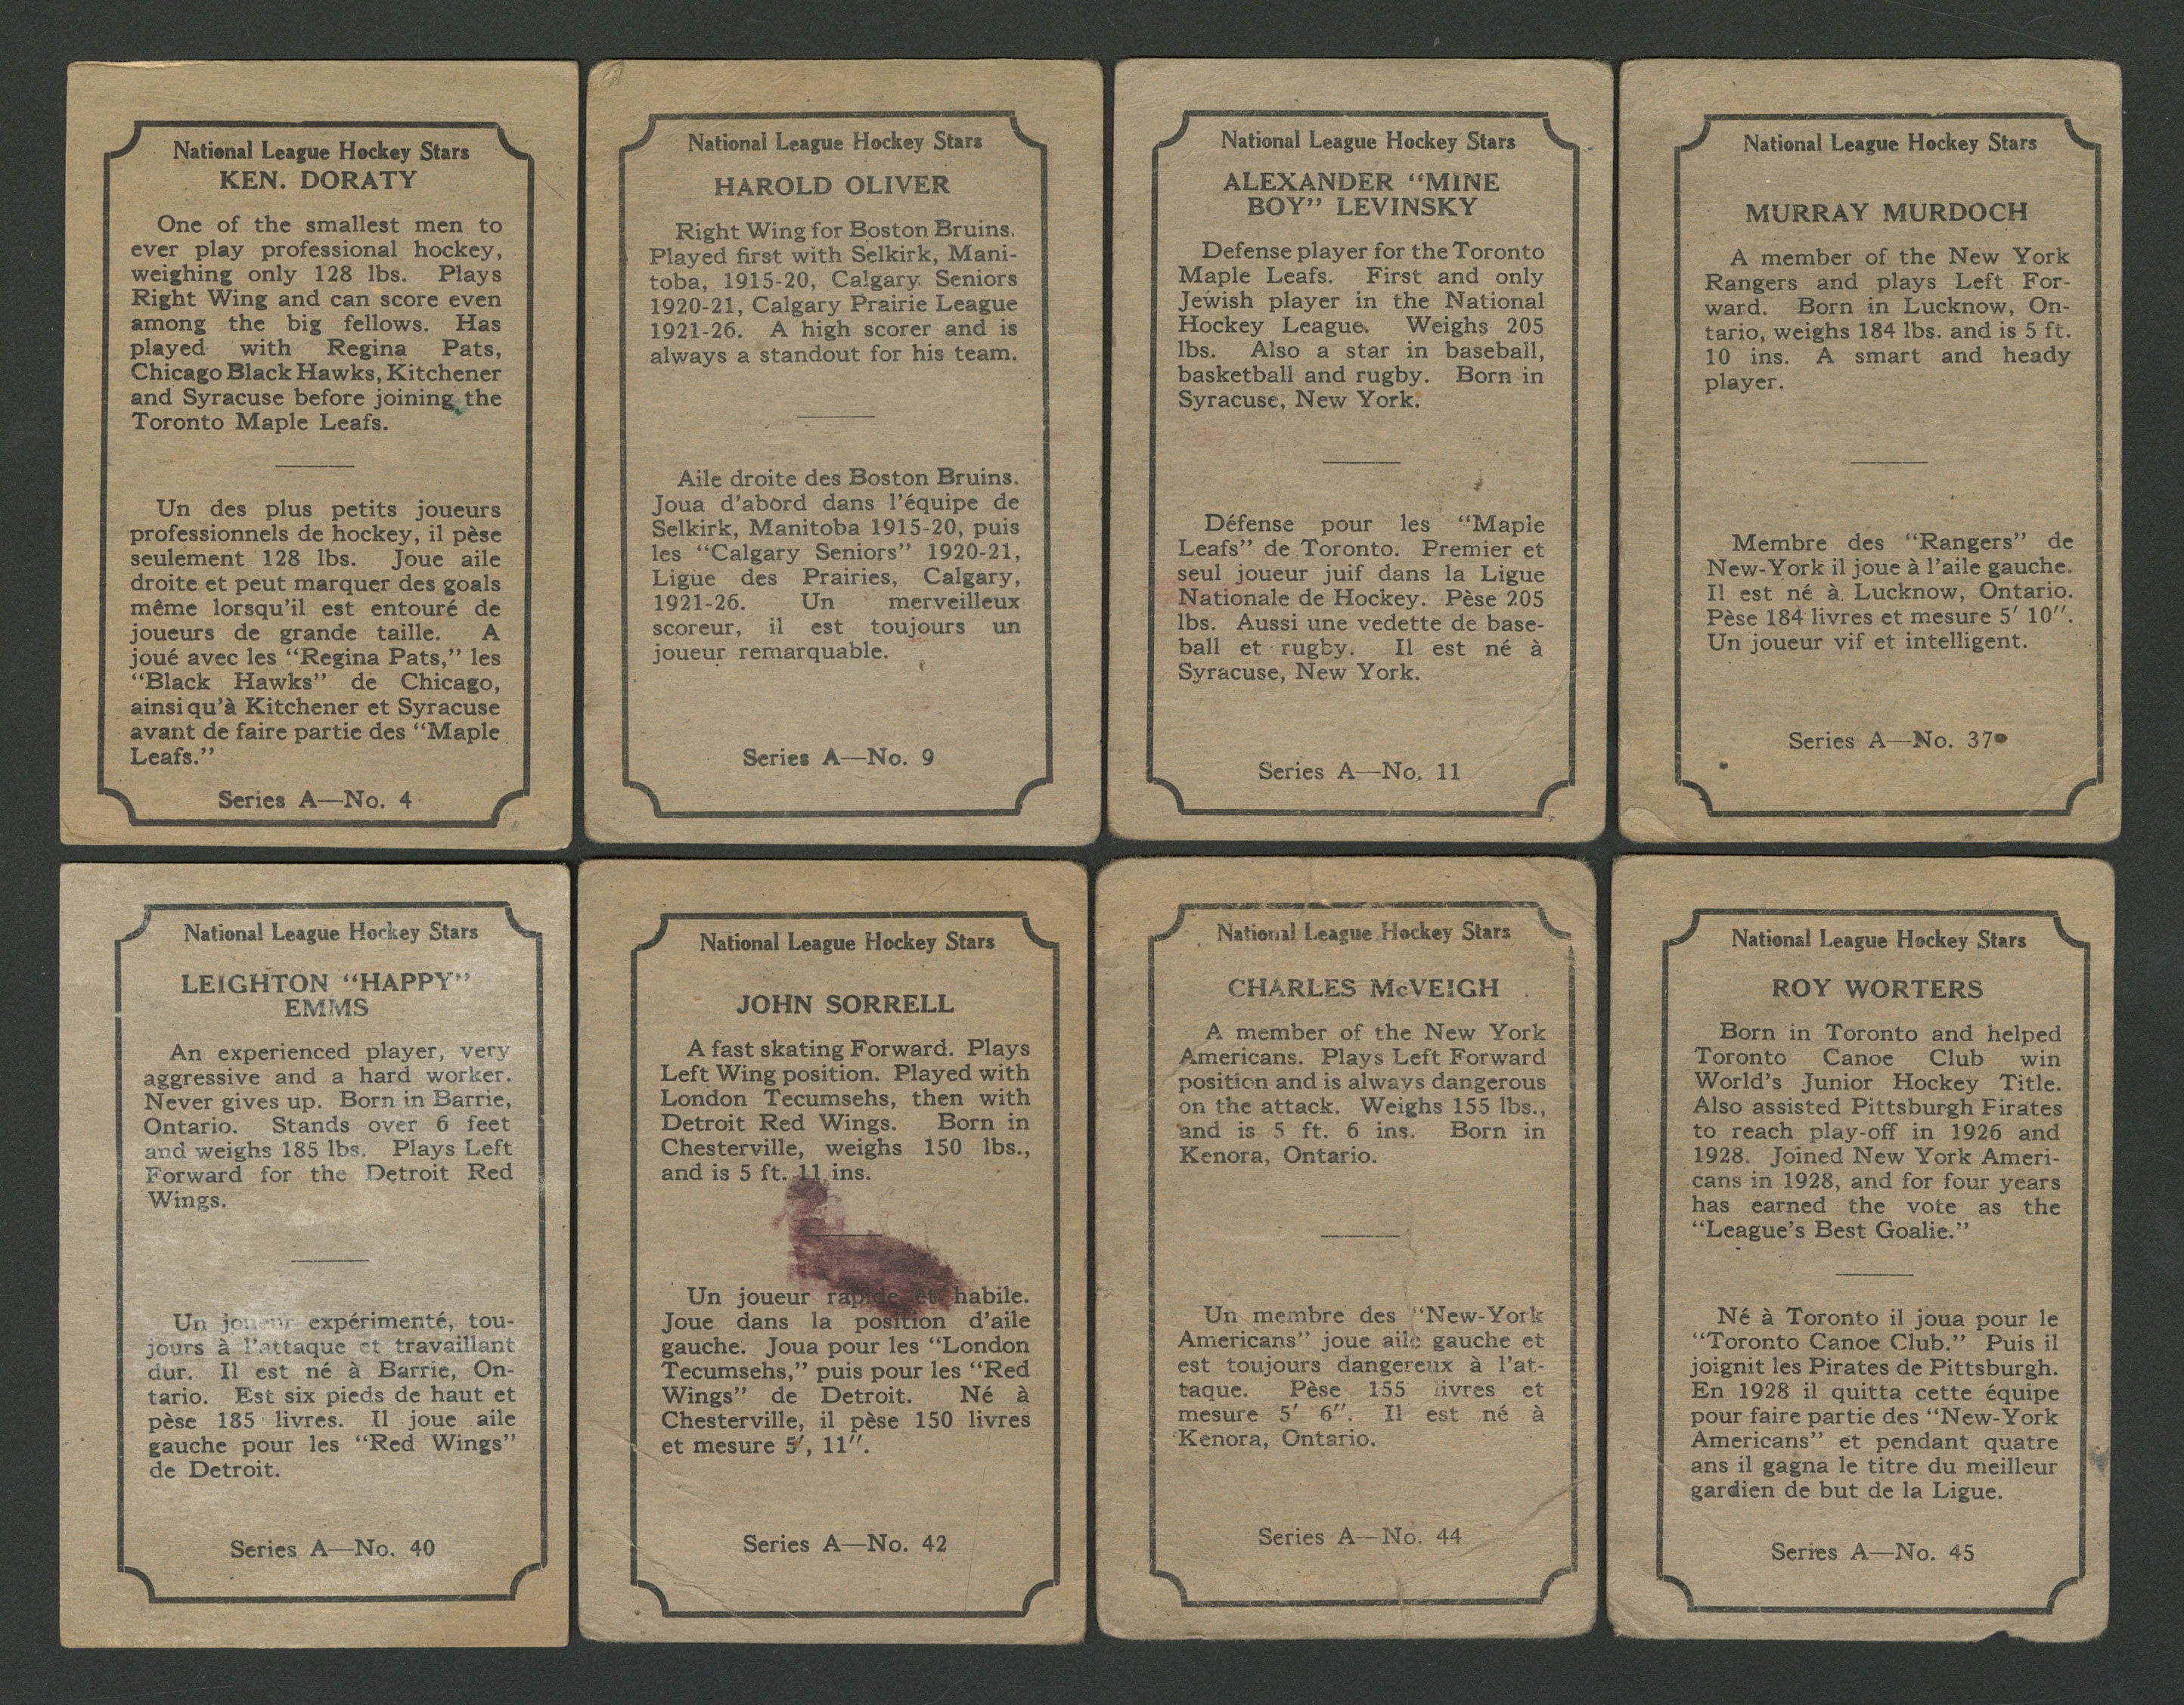 National League Hockey Stars
KEN. DORATY
One of the smallest men to
ever play professional hockey,
weighing only 128 lbs. Plays
Right Wing and can score even
among the big fellows. Has
played with Regina Pats,
Chicago Black Hawks, Kitchener
and Syracuse before joining the
Toronto Maple Leafs.
Un des plus petits joueurs
professionnels de hockey, il pèse
seulement 128 lbs. Joue aile
droite et peut marquer des goals
même lorsqu'il est entouré de
joueurs de grande taille. A
joué avec les "Regina Pats," les
"Black Hawks" de Chicago,
ainsi qu'à Kitchener et Syracuse
avant de faire partie des "Maple
Leafs."
Series A—No. 4
National League Hockey Stars
HAROLD OLIVER
Right Wing for Boston Bruins.
Played first with Selkirk, Mani-
toba, 1915-20, Calgary Seniors
1920-21, Calgary Prairie League
1921-26. A high scorer and is
always a standout for his team.
Aile droite des Boston Bruins.
Joua d'abord dans l'équipe de
Selkirk, Manitoba 1915-20, puis
les "Calgary Seniors" 1920-21,
Ligue des Prairies, Calgary,
1921-26. Un merveilleux
scoreur, il est toujours un
joueur remarquable.
Series A—No. 9
National League Hockey Stars
ALEXANDER "MINE
BOY" LEVINSKY
Defense player for the Toronto
Maple Leafs. First and only
Jewish player in the National
Hockey League. Weighs 205
lbs. Also a star in baseball,
basketball and rugby. Born in
Syracuse, New York.
Défense pour les "Maple
Leafs" de Toronto. Premier et
seul joueur juif dans la Ligue
Nationale de Hockey. Pèse 205
lbs. Aussi une vedette de base-
ball et rugby. Il est né à
Syracuse, New York.
Series A—No. 11
National League Hockey Stars
MURRAY MURDOCH
A member of the New York
Rangers and plays Left For-
ward. Born in Lucknow, On-
tario, weighs 184 lbs. and is 5 ft.
10 ins. A smart and heady
player.
Membre des "Rangers" de
New-York il joue à l'aile gauche.
Il est né à Lucknow, Ontario.
Pèse 184 livres et mesure 5' 10".
Un joueur vif et intelligent.
Series A—No. 37
National League Hockey Stars
LEIGHTON "HAPPY"
EMMS
An experienced player, very
aggressive and a hard worker.
Never gives up. Born in Barrie,
Ontario. Stands over 6 feet
and weighs 185 lbs. Plays Left
Forward for the Detroit Red
Wings.
Un joueur expérimenté, tou-
jours à l'attaque et travaillant
dur. Il est né à Barrie, On-
tario. Est six pieds de haut et
pèse 185 livres. Il joue aile
gauche pour les "Red Wings"
de Detroit.
Series A—No. 40
National League Hockey Stars
JOHN SORRELL
A fast skating Forward. Plays
Left Wing position. Played with
London Tecumsehs, then with
Detroit Red Wings. Born in
Chesterville, weighs 150 lbs.,
and is 5 ft. 11 ins.
Un joueur rapide et habile.
Joue dans la position d'aile
gauche. Joua pour les "London
Tecumsehs," puis pour les "Red
Wings" de Detroit. Né à
Chesterville, il pèse 150 livres
et mesure 5', 11".
Series A—No. 42
National League Hockey Stars
CHARLES McVEIGH
A member of the New York
Americans. Plays Left Forward
position and is always dangerous
on the attack. Weighs 155 lbs.,
and is 5 ft. 6 ins. Born in
Kenora, Ontario.
Un membre des "New-York
Americans" joue aile gauche et
est toujours dangereux à l'at-
taque. Pèse 155 livres et
mesure 5' 6". Il est né à
Kenora, Ontario.
Series A—No. 44
National League Hockey Stars
ROY WORTERS
Born in Toronto and helped
Toronto Canoe Club win
World's Junior Hockey Title.
Also assisted Pittsburgh Firates
to reach play-off in 1926 and
1928. Joined New York Ameri-
cans in 1928, and for four years
has earned the vote as the
"League's Best Goalie."
Né à Toronto il joua pour le
"Toronto Canoe Club." Puis il
joignit les Pirates de Pittsburgh.
En 1928 il quitta cette équipe
pour faire partie des "New-York
Americans" et pendant quatre
ans il gagna le titre du meilleur
gardien de but de la Ligue.
Series A—No. 45